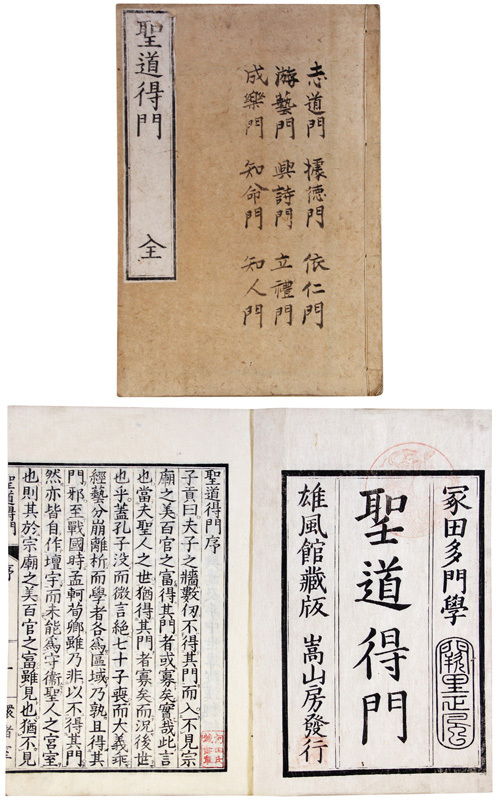 志道門 據德門 依仁門
游藝門 興詩門 立禮門
成樂門 知命門 知人門
聖道得門 全
冢田多門學
聖道得門
雄風館藏版 嵩山房發行
聖道得門序
子貢曰夫子之牆數仞不得其門而入不見宗
廟之美百官之富得其門者或寡矣實哉此言
也當夫聖人之世猶得其門者寡矣而況後世
也乎蓋孔子沒而微言絶七十子喪而大義乖
經藝分崩離析而學者各爲區域乃孰且得其
門邪至戰國時孟軻荀卿雖乃非以不得其門
然亦皆自作壇宇而未能爲守衞聖人之宮室
也則其於宗廟之美百官之富雖見也猶不見
聖道得門 序 一